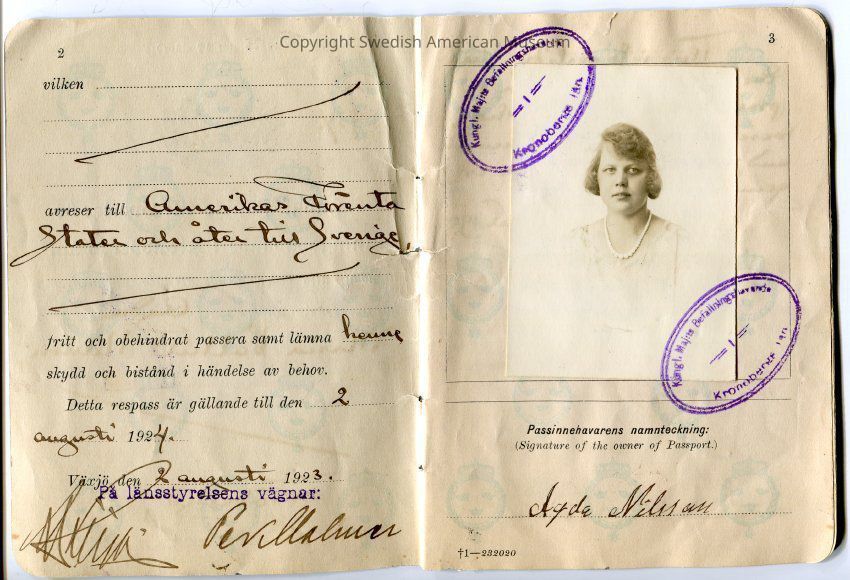 Copyright Swedish American Museum
2
vilken
avreser till Amerikas Förenta
Stater och åter till Sverige,
fritt och obehindrat passera samt lämna henne
skydd och bistånd i händelse av behov.
Detta respass är gällande till den 2
augusti 1924.
Växjö den 2 augusti 1923.
På länsstyrelsens vägnar:
3
Kungl. Maj:ts Befallningshavande
= 1 =
Kronobergs län
Kungl. Maj:ts Befallningshavande
= 1 =
Kronobergs län
Passinnehavarens namnteckning:
(Signature of the owner of Passport.)
Agda Nilsson
†1—232020